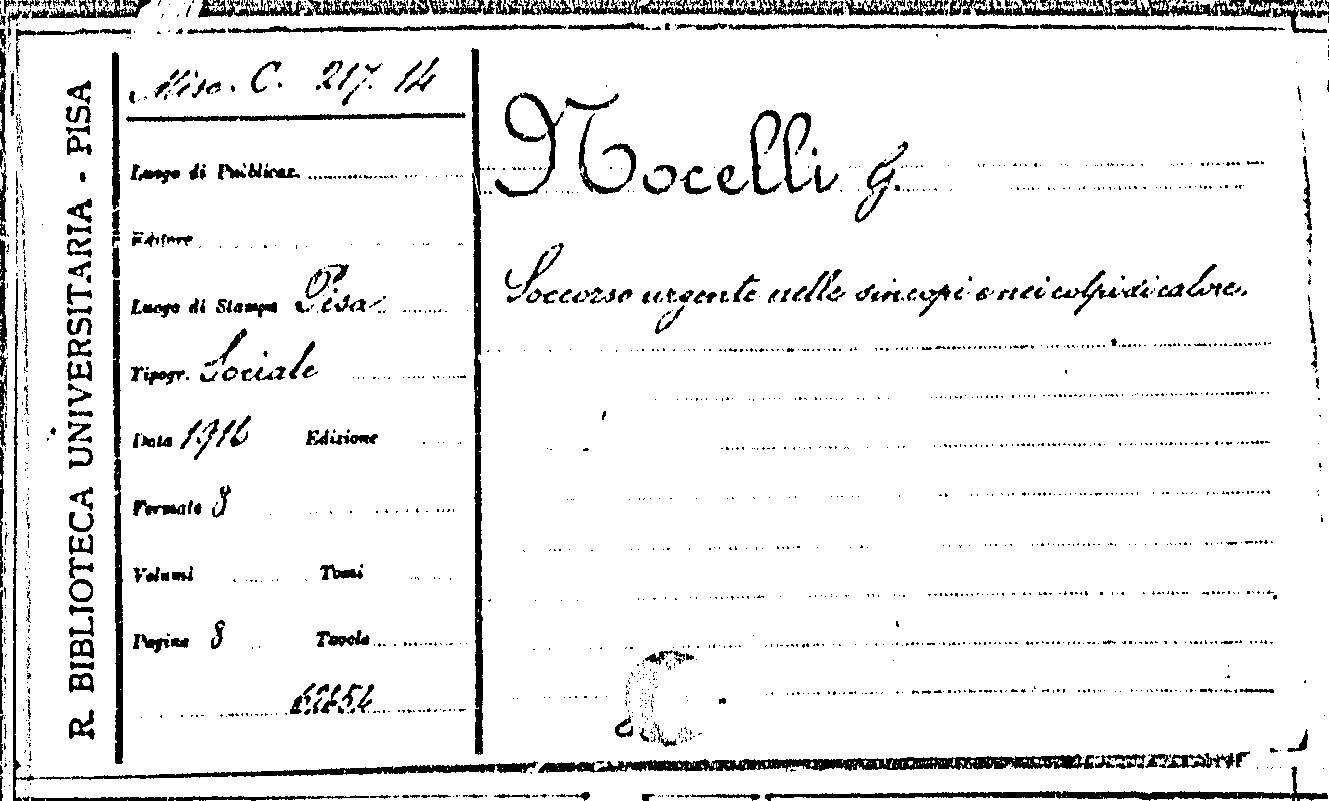 R. BIBLIOTECA UNIVERSITARIA - PISA
Misc. C. 217. 14
Luogo di Pubblicaz.
Editore
Luogo di Stampa Pisa
Tipogr. Sociale
Data 1916 Edizione
Formato 8
Volumi Tomi
Pagine 8 Tavole
Nocelli G.
Soccorso urgente nelle sincopi e nei colpi di calore.